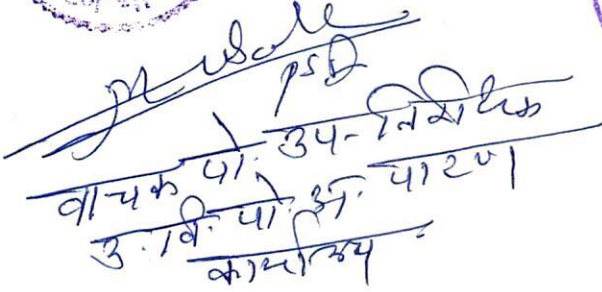 PSI
वाचक पो. उप-निरीक्षक
उ. वि. पो. अ. पाटण
कार्यालय